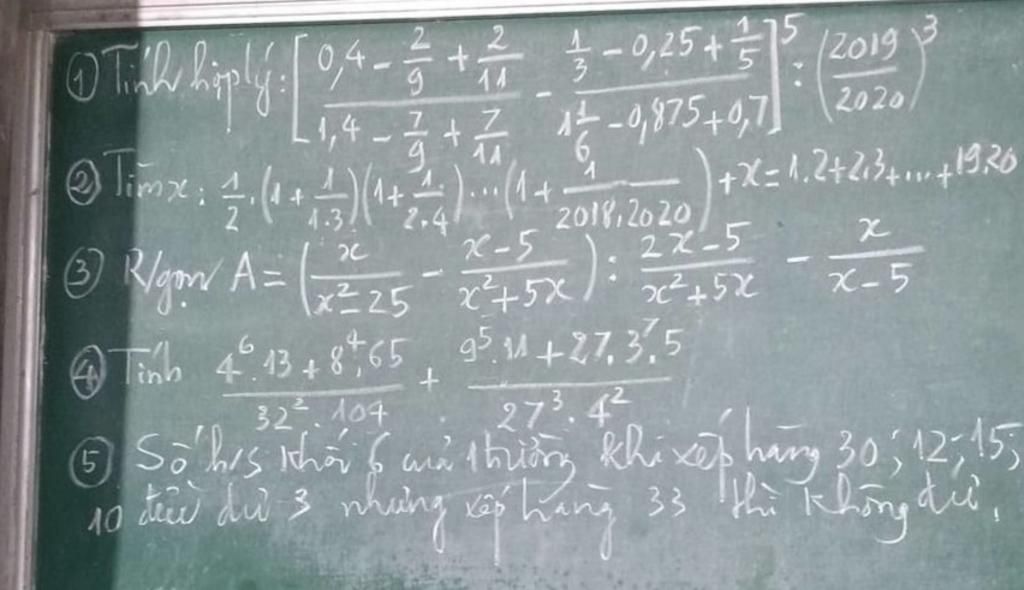 ① Tính hợp lý: [(0,4 - 2/9 + 2/11)/(1,4 - 7/9 + 7/11) - (1/3 - 0,25 + 1/5)/(1 1/6 - 0,875 + 0,7)]⁵ : (2019/2020)³
② Tìm x: 1/2 . (1 + 1/1.3)(1 + 1/2.4)...(1 + 1/2018.2020) + x = 1.2 + 2.3 + ... + 19.20
③ R/gọn A = (x/(x² - 25) - (x - 5)/(x² + 5x)) : (2x - 5)/(x² + 5x) - x/(x - 5)
④ Tính (4⁶.13 + 8⁴.65)/(32².104) + (9⁵.11 + 27.3⁷.5)/(27³.4²)
⑤ Số h/s khối 6 của trường khi xếp hàng 30; 12; 15;
10 đều dư 3 nhưng xếp hàng 33 thì không dư.